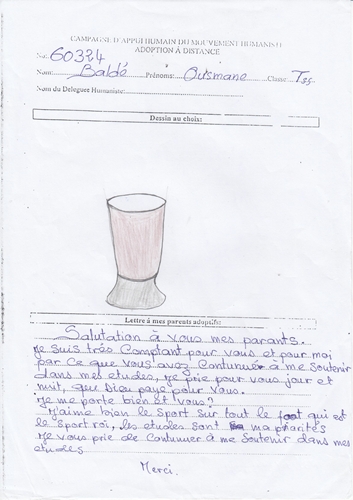 CAMPAGNE D'APPUI HUMAIN DU MOUVEMENT HUMANISTE
ADOPTION À DISTANCE
No: 60324
Nom: Baldé Prénoms: Ousmane Classe: Tss
Nom du Deleguer Humaniste:
Dessin au choix:
Lettre à mes parents adoptifs:
Salutation à vous mes parants.
Je suis très Comptant pour vous et pour moi
par Ce que vous avez Contunuér à me Soutenir
dans mes etudes, Je prie pour vous jour et
nuit, que Dieu paye pour vous.
Je me porte bien et vous?
J'aime bien le sport sur tout le foot qui est
le sport roi, les etudes sont ma priorités
Je vous prie de Contunuer à me Soutenir dans mes
etudes
Merci.